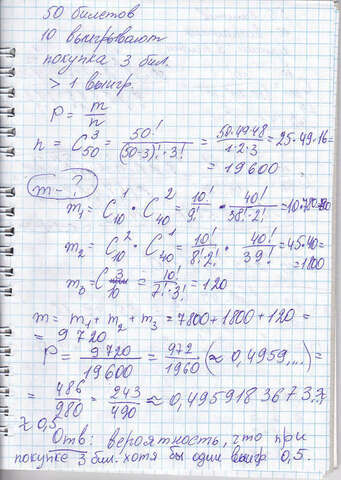 50 билетов
10 выигрывают
покупка 3 бил.
> 1 выигр.
P = m/n
n = C₅₀³ = 50!/((50-3)!·3!) = 50·49·48/(1·2·3) = 25·49·16 =
= 19600
m - ?
m₁ = C₁₀¹ · C₄₀² = 10!/9! · 40!/(38!·2!) = 10·780
m₂ = C₁₀² · C₄₀¹ = 10!/(8!·2!) · 40!/39! = 45·40 =
= 1800
C₁₀³ = 10!/(7!·3!) = 120
m = m₁ + m₂ + m₃ = 7800 + 1800 + 120 =
= 9720
P = 9720/19600 = 972/1960 (≈ 0,4959...) =
= 486/980 = 243/490 ≈ 0,4959183673 ≈
≈ 0,5
Отв: вероятность, что при
покупке 3 бил. хотя бы один выигр 0,5.